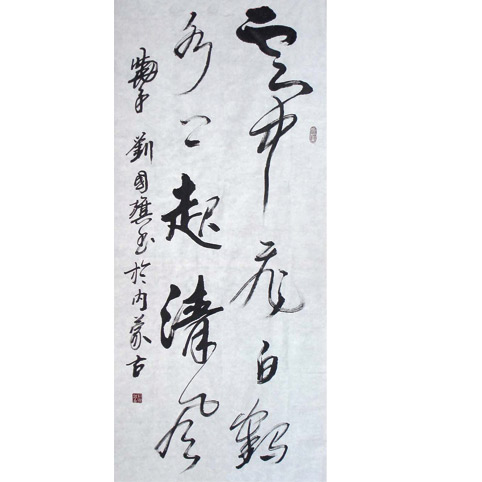 雲中飛白鶴
水上起清風
劉國旗書於内蒙古